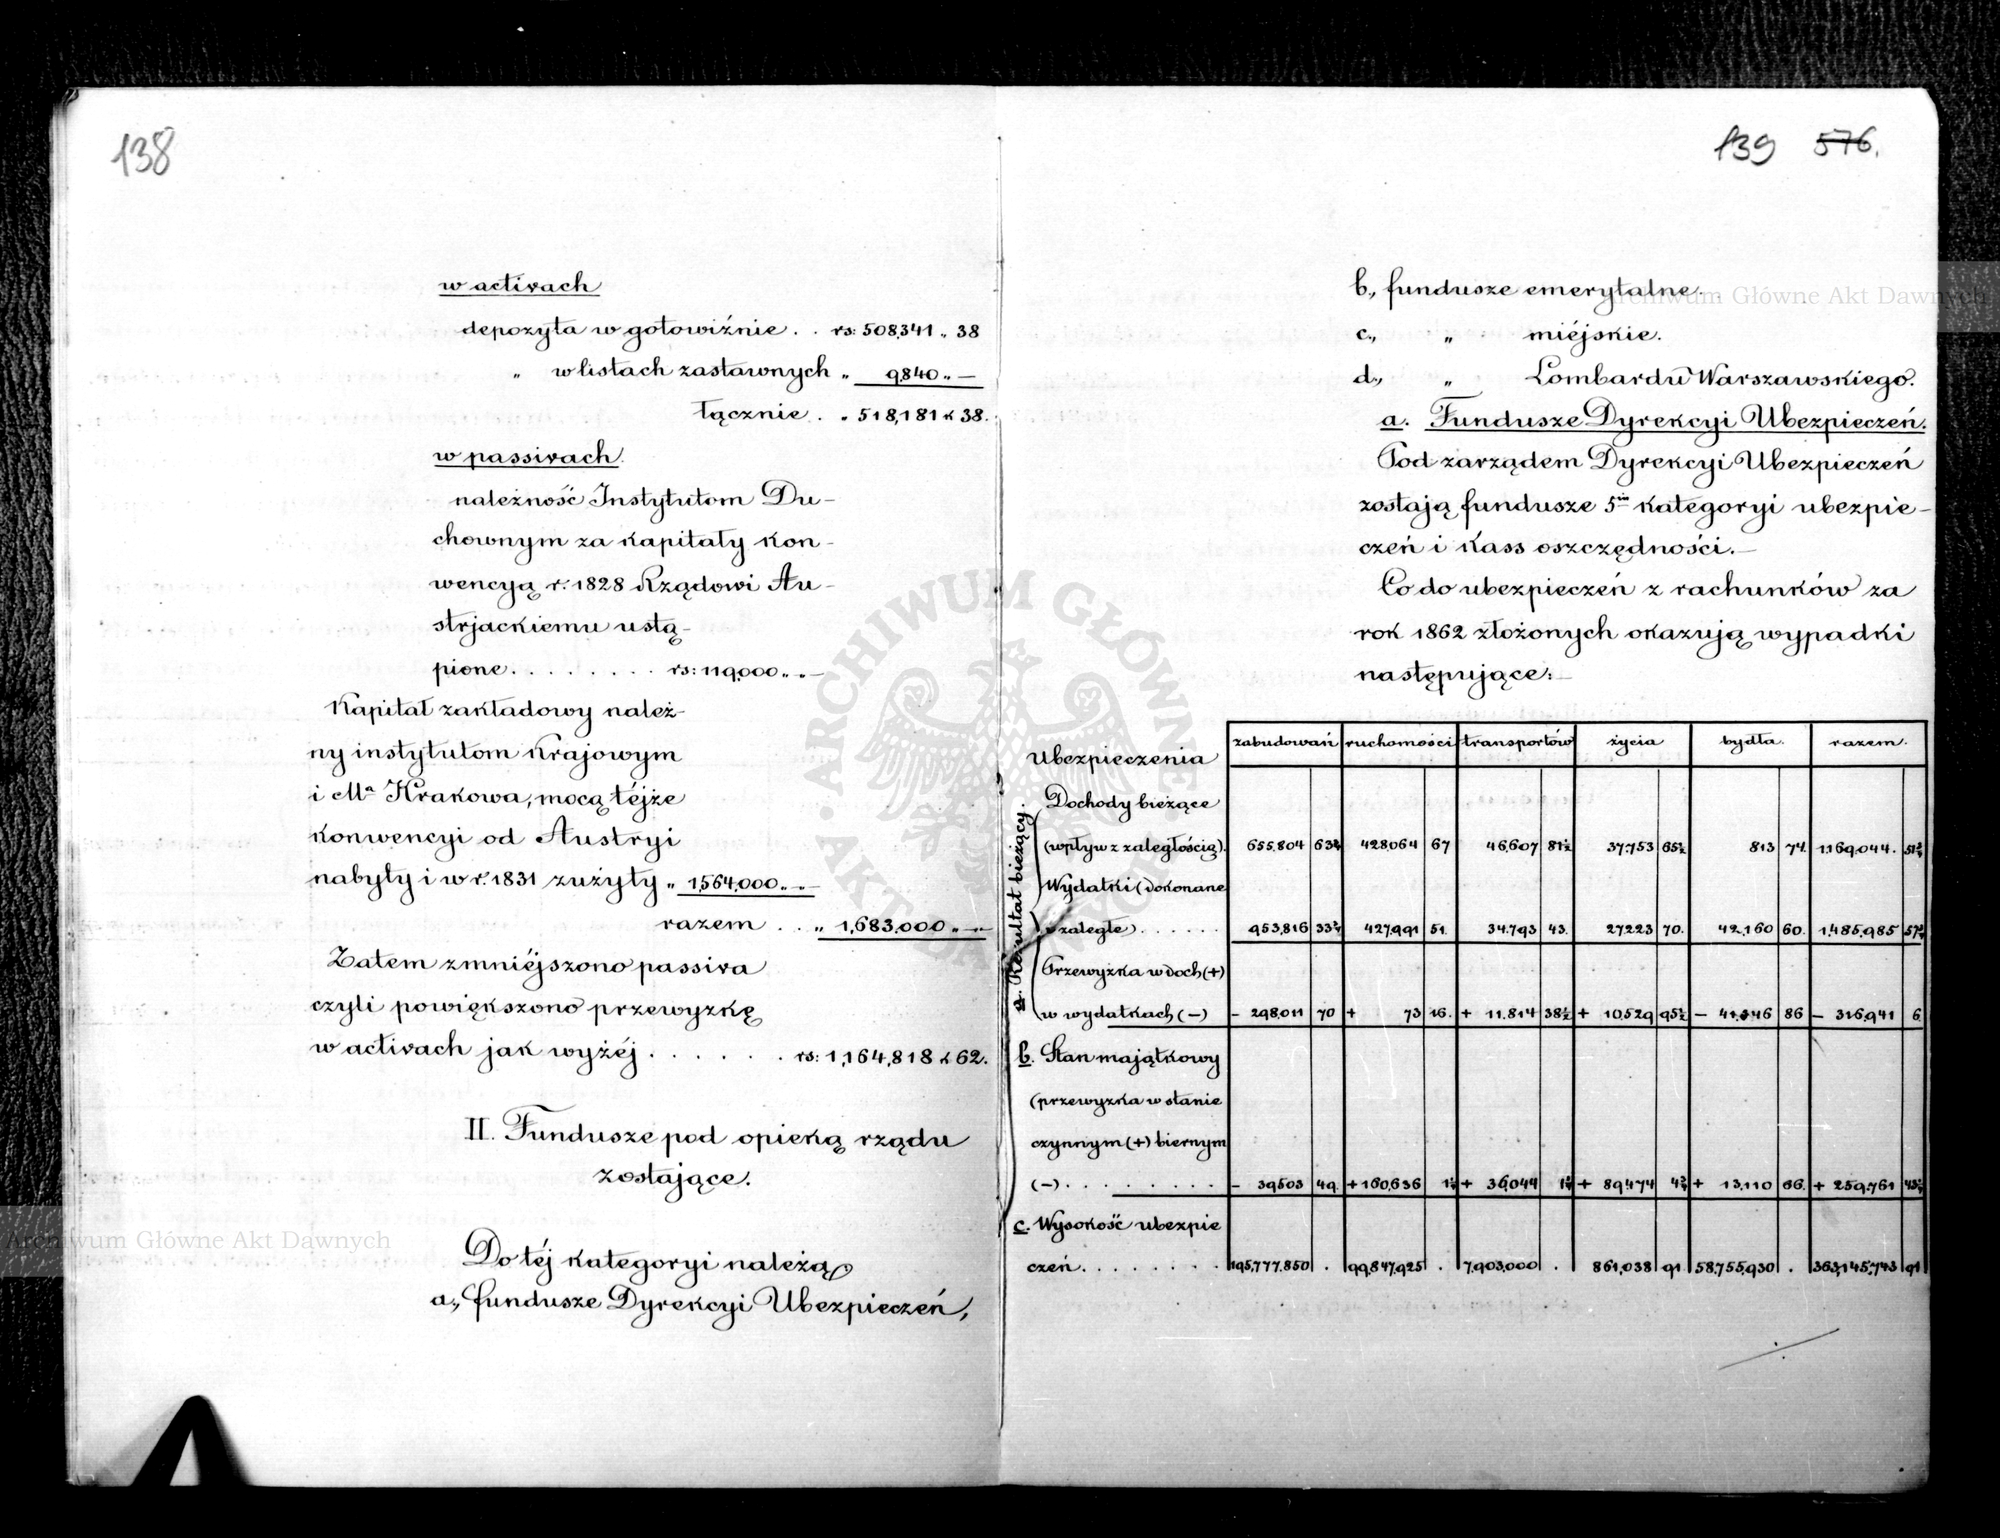 138
w activach
depozyta w gotowiźnie . . rs: 508,341 „ 38
„ w listach zastawnych „ 9,840 „ —
łącznie . „ 518,181 k 38.
w passivach
należność Instytutom Du-
chownym za kapitały kon-
wencyą r. 1828 Rządowi Au-
strjackiemu ustą-
pione . . . . . . . . rs: 119,000 „ „ —
Kapitał zakładowy należ-
ny instytutom Krajowym
i Ma Krakowa, mocą téjże
konwencyi od Austryi
nabyty i w r. 1831 zużyty „ 1,564,000 „ „ —
razem . . „ 1,683,000 „ — „
Zatem zmniéjszono passiva
czyli powiększono przewyżkę
w activach jak wyżéj . . . . . . rs: 1,164,818 k 62.
II. Fundusze pod opieką rządu
zostające.
Do téj kategoryi należą
a., fundusze Dyrekcyi Ubezpieczeń,
139 576.
b., fundusze emerytalne.
c., „ miéjskie.
d., „ Lombardu Warszawskiego.
a. Fundusze Dyrekcyi Ubezpieczeń.
Pod zarządem Dyrekcyi Ubezpieczeń
zostają fundusze 5iu kategoryi ubezpie-
czeń i kass oszczędności. —
Co do ubezpieczeń z rachunków za
rok 1862 złożonych okazują wypadki
następujące: —
Ubezpieczenia zabudowań ruchomości transportów życia bydła. razem.
a. Rezultat bieżący.
Dochody bieżące
(wpływ z zaległością). 655,804 63¾ 428,064 67 46,607 81½ 37,753 65½ 813 74. 1,169,044. 51¾
Wydatki (dokonane
i zaległe) . . . . . . 953,816 33¾ 427,991 51. 34,793 43. 27,223 70. 42,160 60. 1,485,985 57¾
Przewyżka w doch (+)
w wydatkach (—) — 298,011 70 + 73 16. + 11,814 38½ + 10,529 95½ — 41,346 86 — 316,941 6
b. Stan majątkowy
(przewyżka w stanie
czynnym (+) biernym
(—) . . . . . . . . — 39,503 49. + 160,636 + 36,044 + 89,474 + 13,110 66. + 259,761
c. Wysokość ubezpie
czeń . . . . . . . . 195,777,850 . 99,847,925 . 7,903,000 . 861,038 91 58,755,930 . 363,145,743 91
Archiwum Główne Akt Dawnych
ARCHIWUM GŁÓWNE AKT DAWNYCH
Archiwum Główne Akt Dawnych